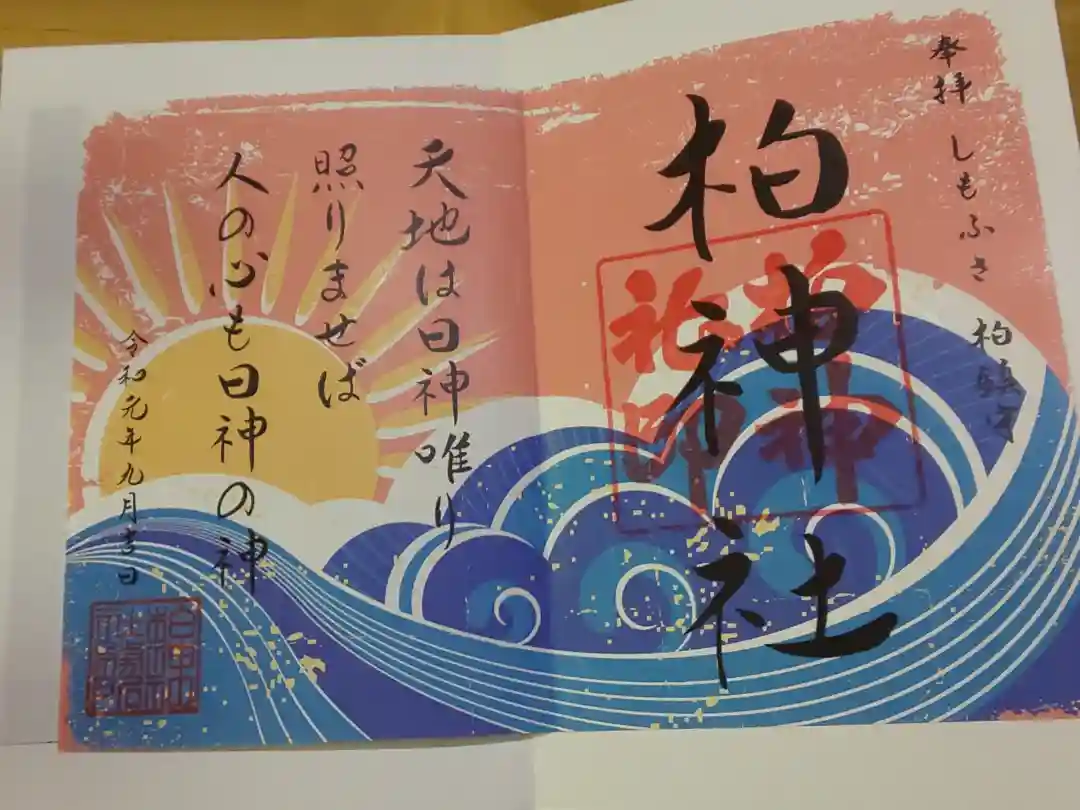 奉拝
しもふさ
柏鎮守
柏神社
天地は日神唯り
照りませば
人の心も日神の神
令和元年九月吉日